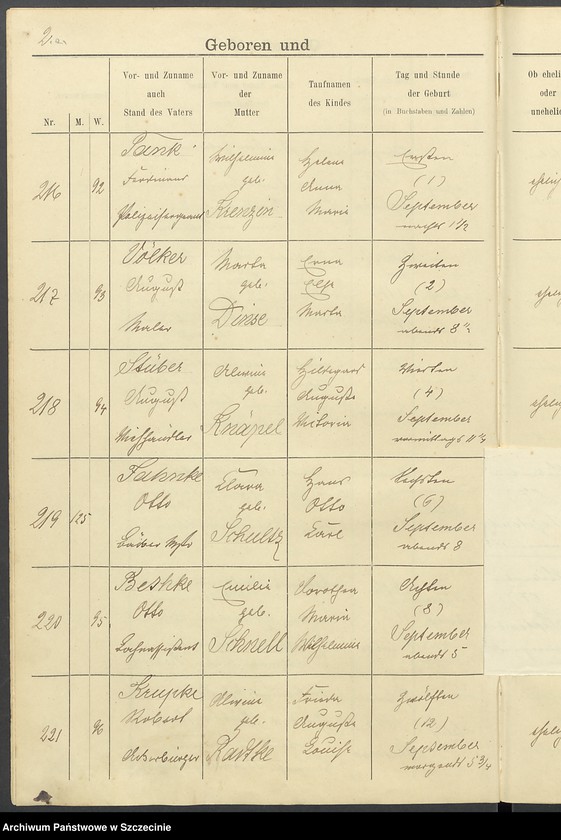 Geboren und
Nr.
M.
W.
Vor- und Zuname
auch
Stand des Vaters
Vor- und Zuname
der
Mutter
Taufnamen
des Kindes
Tag und Stunde
der Geburt
(in Buchstaben und Zahlen)
Ob eheli
oder
unehelic
216
92
Ferdinand
Wilhelmine
geb.
Krenzin
Helene
Anna
Marie
Ersten
(1)
September
nachts 1½
217
93
Völker
August
Maler
Marta
geb.
Dinse
Erna
Else
Marta
Zweiten
(2)
September
abends
218
94
Stüber
August
Viehhändler
geb.
Knäpel
Hildegard
Auguste
Victoria
Vierten
(4)
September
vormittags
219
125
Jahnke
Otto
Clara
geb.
Schultz
Hans
Otto
Carl
Sechsten
(6)
September
abends 8
220
95
Beshke
Otto
Emilie
geb.
Schnell
Dorothea
Maria
Wilhelmine
Achten
(8)
September
abends 5
221
96
Krupke
Robert
Ackerbürger
geb.
Radtke
Frieda
Auguste
Louise
Zwölften
(12)
September
morgends 5¾
Archiwum Państwowe w Szczecinie